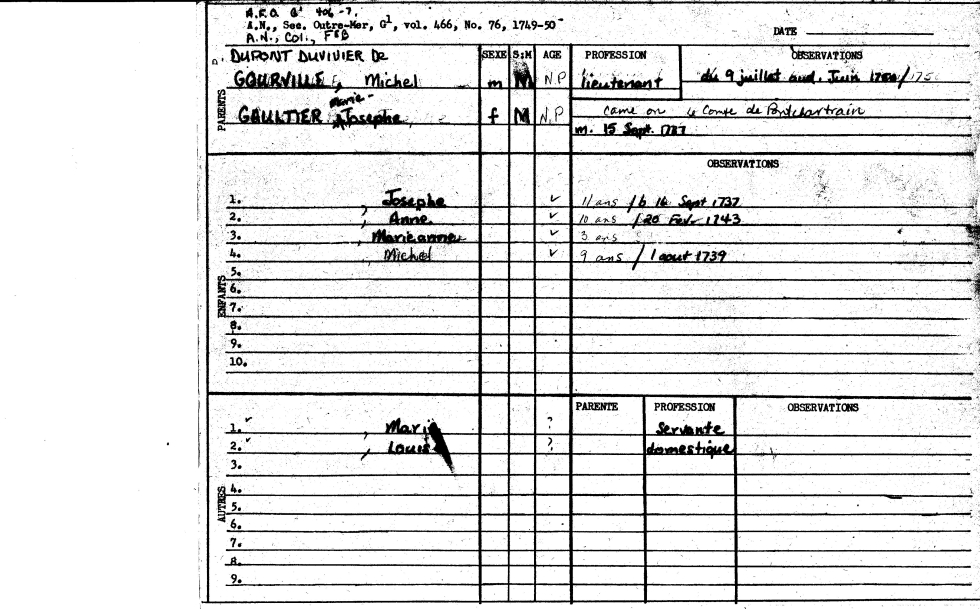 A.F.O. G1 406-7.
A.N., Sec. Outre-Mer, G1, vol. 466, No. 76, 1749-50
A.N., Col., F5B
DATE
DUPONT DUVIVIER De SEXE S:M AGE PROFESSION OBSERVATIONS
GOURVILLE, Michel m M N.P lieutenant du 9 juillet aud. Juin 1750/175
PARENTS
Marie-
GAULTIER, Josephe, f M N.P came on le Comte de Pontchartrain
m. 15 Sept. 1737
OBSERVATIONS
1. , Josephe ✓ 11 ans /b 16 Sept 1737
2. , Anne. ✓ 10 ans /20 Fev. 1743
3. , Marieanne ✓ 3 ans
4. , Michel ✓ 9 ans / 1 aout 1739
ENFANTS
5.
6.
7.
8.
9.
10.
PARENTE PROFESSION OBSERVATIONS
1. ✓ , Marie ? Servante
2. ✓ , Louis ? domestique
3.
AUTRES
4.
5.
6.
7.
8.
9.